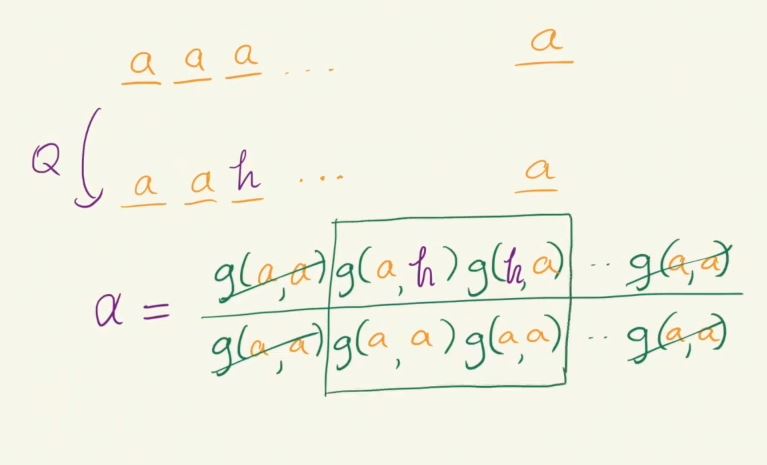 a a a ... a
Q
a a h ... a
α = g(a,a) g(a,h) g(h,a) ·· g(a,a)
g(a,a) g(a,a) g(a,a) ·· g(a,a)